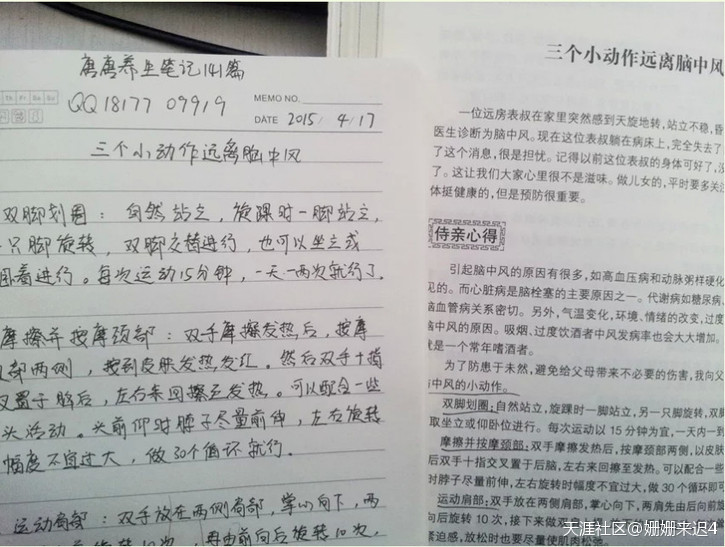 唐唐养生笔记141篇
QQ 18177 09919
MEMO NO.
DATE 2015/4/17
三个小动作远离脑中风
双脚划圈：自然站立，旋踝时一脚站立，
一只脚旋转，双脚交替进行，也可以坐立或
卧着进行。每次运动15分钟，一天一两次就行了。
摩擦并按摩颈部：双手摩擦发热后，按摩
部两侧，按到皮肤发热发红。然后双手十指
叉置于脑后，左右来回擦至发热。可以配合一些
头活动。头前仰时脖子尽量前伸，左右旋转
幅度不宜过大，做30个循环就行。
运动肩部：双手放在两侧肩部，掌心向下，两
旋转10次，再由前向后旋转10次，
三个小动作远离脑中风
一位远房表叔在家里突然感到天旋地转，站立不稳，昏
医生诊断为脑中风。现在这位表叔躺在病床上，完全失去了
了这个消息，很是担忧。记得以前这位表叔的身体可好了，没
了。这让我们大家心里很不是滋味。做儿女的，平时要多关
体挺健康的，但是预防很重要。
侍亲心得
引起脑中风的原因有很多，如高血压病和动脉粥样硬化
见的。而心脏病是脑栓塞的主要原因之一。代谢病如糖尿病、
脑血管病关系密切。另外，气温变化、环境、情绪的改变，过度
脑中风的原因。吸烟、过度饮酒者中风发病率也会大大增加。
就是一个常年嗜酒者。
为了防患于未然，避免给父母带来不必要的伤害，我向父
中风的小动作。
双脚划圈：自然站立，旋踝时一脚站立，另一只脚旋转，双脚
取坐立或仰卧位进行。每次运动以15分钟为宜，一天内一到
摩擦并按摩颈部：双手摩擦发热后，按摩颈部两侧，以皮肤
后双手十指交叉置于后脑，左右来回擦至发热。可以配合一些
时脖子尽量前伸，左右旋转时幅度不宜过大，做30个循环即可
运动肩部：双手放在两侧肩部，掌心向下，两肩先由后向前旋
向后旋转10次，接下来做
紧迫感，放松时也要尽量使肌肉松弛。
天涯社区@姗姗来迟4